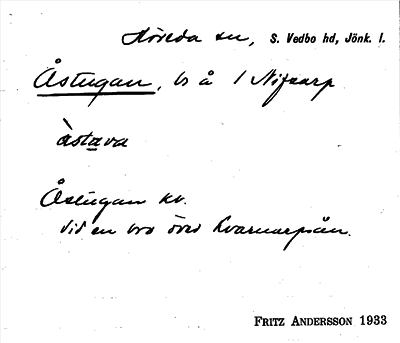 Höreda sn, S. Vedbo hd, Jönk. l.
Åstugan, bs å 1 Nifsarp
àstava
Åstugan kv.
vid en bro över Kvarnarpsån.
FRITZ ANDERSSON 1933